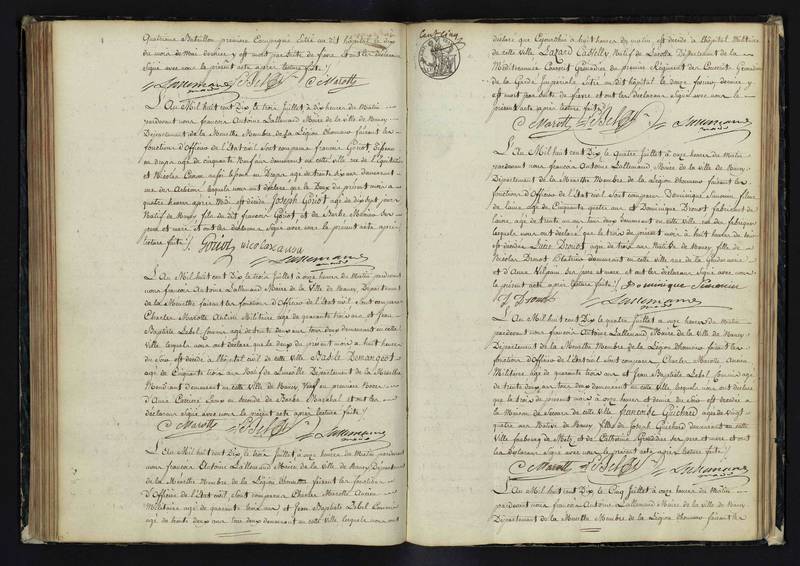 Quatrieme Bataillon premiere Compagnie Entré au dit hôpital le dix
du mois de Mai dernier y est mort par suite de fievre et ont les déclarans
Signé avec nous le présent acte après lecture faite /.
Lallemand Lebel C Marotte
L'An Mil huit cent Dix le trois Juillet à dix heures du Matin
pardevant nous françois Antoine Lallemand Maire de la ville de Nancy
Département de la Meurthe Membre de la Légion d'honneur faisant les
fonctions d'Officier de l'Etat civil Sont comparus francois Goriot
agé de cinquante Neuf ans demeurant en cette ville rue de
et Nicolas agé de trente dix ans demeurant
rue lesquels nous ont déclaré que le Deux du présent mois à
quatre heures après Midi est décédé Joseph Goriot agé de dix sept jours
Natif de Nancy fils du dit francois Goriot et de Barbe ses
pere et mere et ont les déclarans Signé avec nous le présent acte après
lecture faite /. Goriot nicolas
Lallemand
L'An Mil huit cent Dix le trois Juillet à onze heures du Matin pardevant
nous françois Antoine Lallemand Maire de la Ville de Nancy Département
de la Meurthe faisant les fonctions d'Officier de l'Etat civil Sont comparus
Charles Marotte Ancien Militaire agé de quarante trois ans et Jean
Baptiste Lebel Commis agé de trente deux ans tous deux demeurant en cette
Ville lesquels nous ont déclaré que le deux du présent mois à huit heures
du Soir est décédé à l'hôpital civil de cette Ville Basile Demangeot
agé de Cinquante huit ans Natif de Lunéville Département de la Meurthe
demeurant en cette Ville de Nancy Veuf en premiere Noces
d'Anne en seconde de Barbe et ont les
déclarans Signé avec nous le présent acte après lecture faite /.
C Marotte Lebel Lallemand
L'An Mil huit cent Dix le trois Juillet à onze heures du Matin pardevant
nous françois Antoine Lallemand Maire de la Ville de Nancy Département
de la Meurthe Membre de la Légion d'honneur faisant les fonctions
d'Officier de l'Etat civil Sont comparus Charles Marotte Ancien
Militaire agé de quarante trois ans et Jean Baptiste Lebel Commis
agé de trente deux ans tous deux demeurant en cette ville, lesquels nous ont
Cent Cinq
déclaré que Cejourd'hui à huit heures du matin est décédé à l'hôpital Militaire
de cette Ville Lazard Natif de Département de la
Méditerranée Conscrit Grenadier au premier Régiment des Conscrits Grenadiers
de la Garde Impériale Entré au dit hôpital le douze Janvier dernier y
est mort par suite de fievre et ont les déclarans Signé avec nous le
présent acte après lecture faite /.
C Marotte Lebel Lallemand
L'An Mil huit cent Dix le quatre Juillet à onze heures du Matin
pardevant nous françois Antoine Lallemand Maire de la Ville de Nancy
Département de la Meurthe Membre de la Légion d'honneur faisant les
fonctions d'Officier de l'Etat civil Sont comparus Dominique Simonin fileur
de laine agé de Cinquante quatre ans et Dominique Drouot fabricant de
laine agé de trente un ans tous deux demeurant en cette Ville rue des fabriques
lesquels nous ont déclaré que le trois du présent mois à huit heures du soir
est décédée Luce Drouot agée de trois ans Native de Nancy fille de
Nicolas Drouot demeurant en cette ville rue de la
et d'Anne ses pere et mere et ont les déclarans Signé avec nous
le présent acte après lecture faite /. Dominique Simonin
D Drouot Lallemand
L'An Mil huit cent Dix le quatre Juillet à onze heures du Matin
pardevant nous françois Antoine Lallemand Maire de la ville de Nancy
Département de la Meurthe Membre de la Légion d'honneur faisant les
fonctions d'Officier de l'Etat civil Sont comparus Charles Marotte Ancien
Militaire agé de quarante trois ans et Jean Baptiste Lebel Commis agé
de trente deux ans tous deux demeurant en cette Ville, lesquels nous ont déclaré
que le trois du présent mois à onze heures et demie du Soir est décédée à
la Maison de Secours de cette Ville françoise Guichard agée de vingt
quatre ans Native de Nancy fille de Joseph Guichard demeurant en cette
Ville faubourg de Metz et de Catherine ses pere et mere et ont les
déclarans Signé avec nous le présent acte après lecture faite /.
C Marotte Lebel Lallemand
L'An Mil huit cent Dix le Cinq Juillet à onze heures du Matin
pardevant nous françois Antoine Lallemand Maire de la ville de Nancy
Département de la Meurthe Membre de la Légion d'honneur faisant les